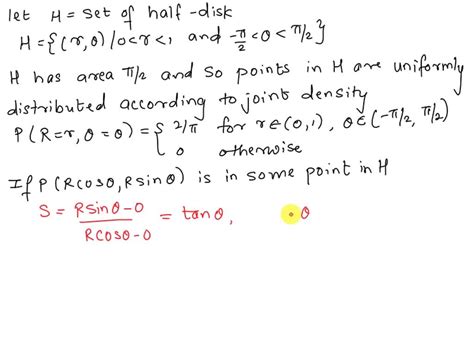 let H = set of half-disk
H = {(r,θ) / 0<r<1, and -π/2 < θ < π/2}
H has area π/2 and so points in H are uniformly
distributed according to joint density
P(R=r, θ=θ) = { 2/π for r∈(0,1), θ∈(-π/2, π/2)
0 otherwise
If P(Rcosθ, Rsinθ) is in some point in H
S = Rsinθ-0 / Rcosθ-0 = tanθ, θ